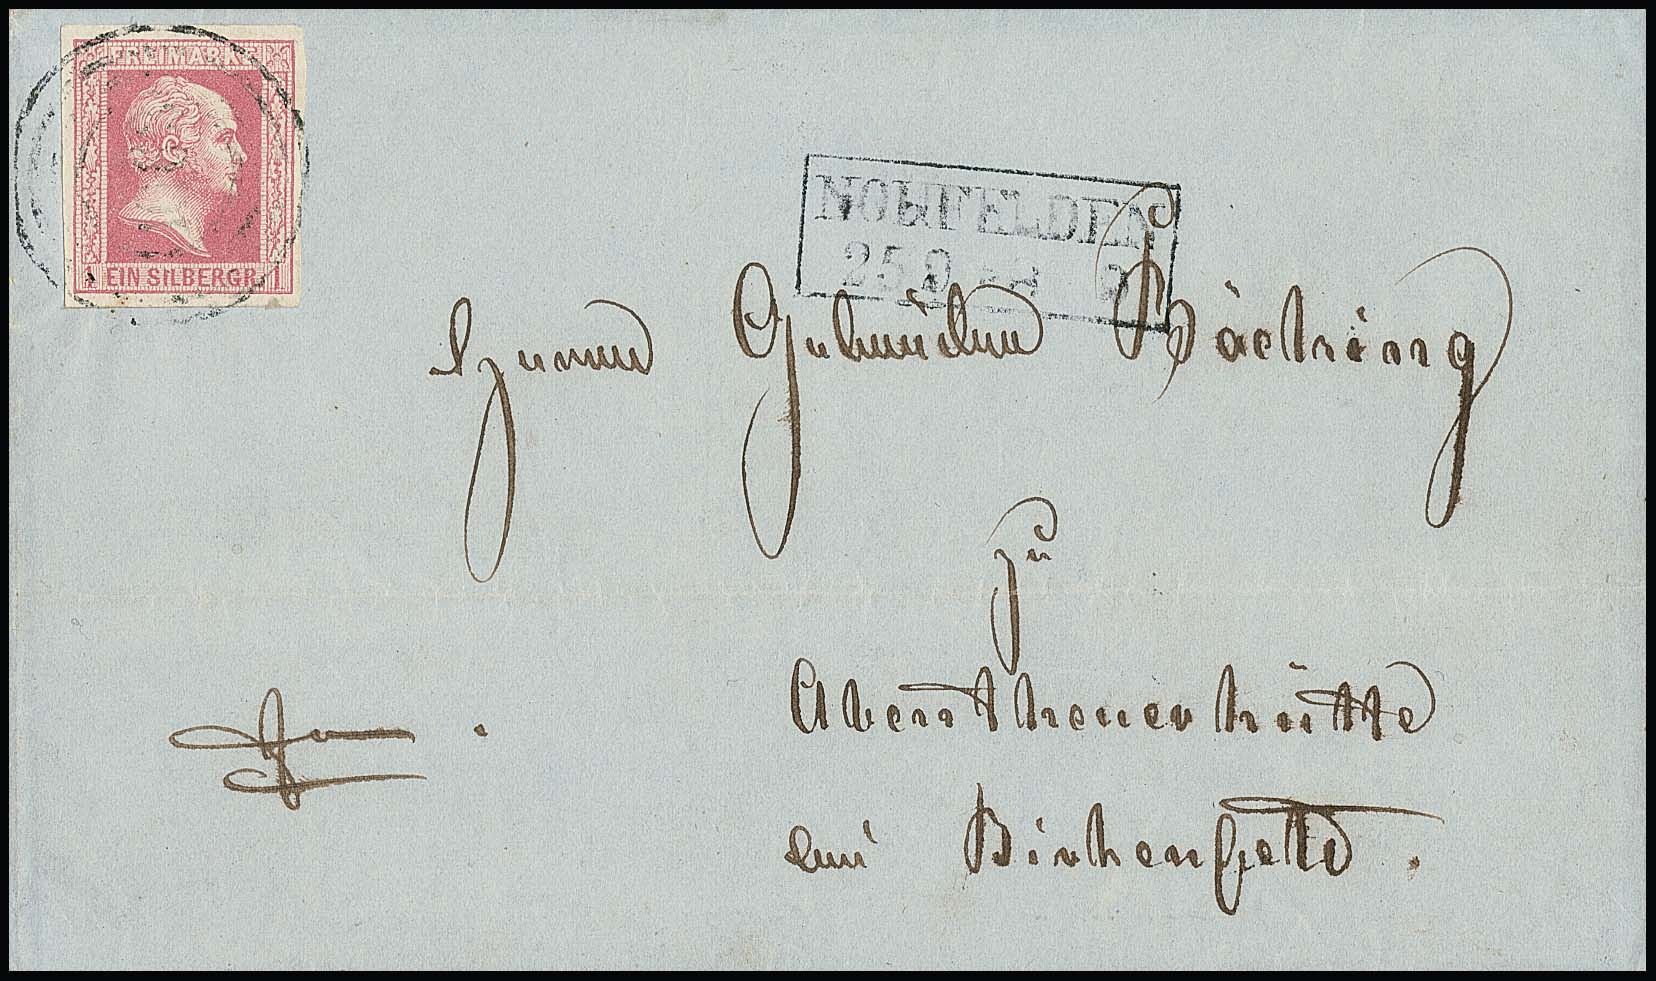 FREIMARKE
EIN SILBERGR.
NOHFELDEN
25 9
Herren Gebrüder Böcking
zu
Abentheuerhütte
bei Birkenfeld.